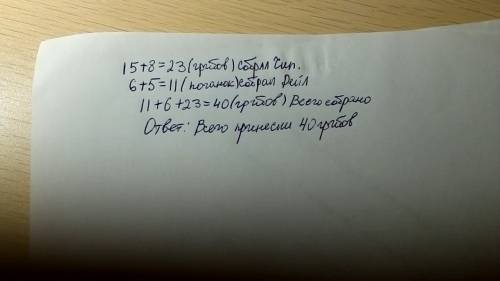 15+8=23(грибов) собрал Чип.
6+5=11(поганок) собрал Дейл
11+6+23=40(грибов) Всего собрано
Ответ: Всего принесли 40 грибов